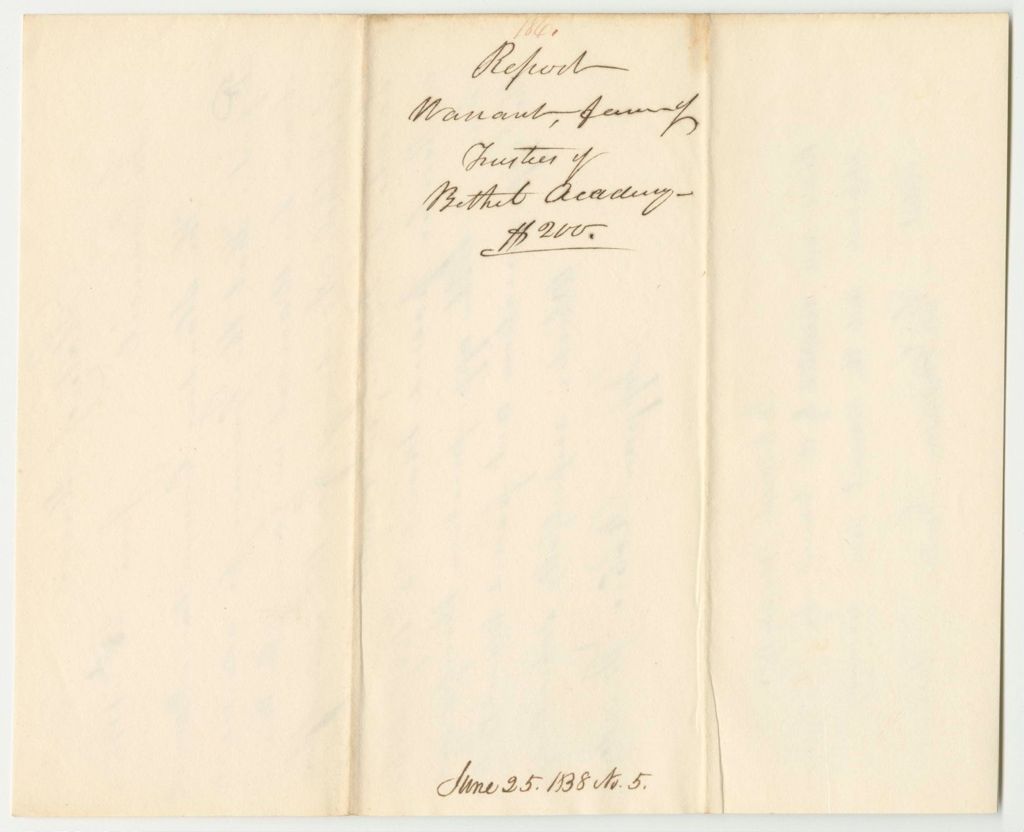 184.
Report
Warrant, favor of
Trustees of
Bethel Academy
$200.
June 25. 1838 No. 5.